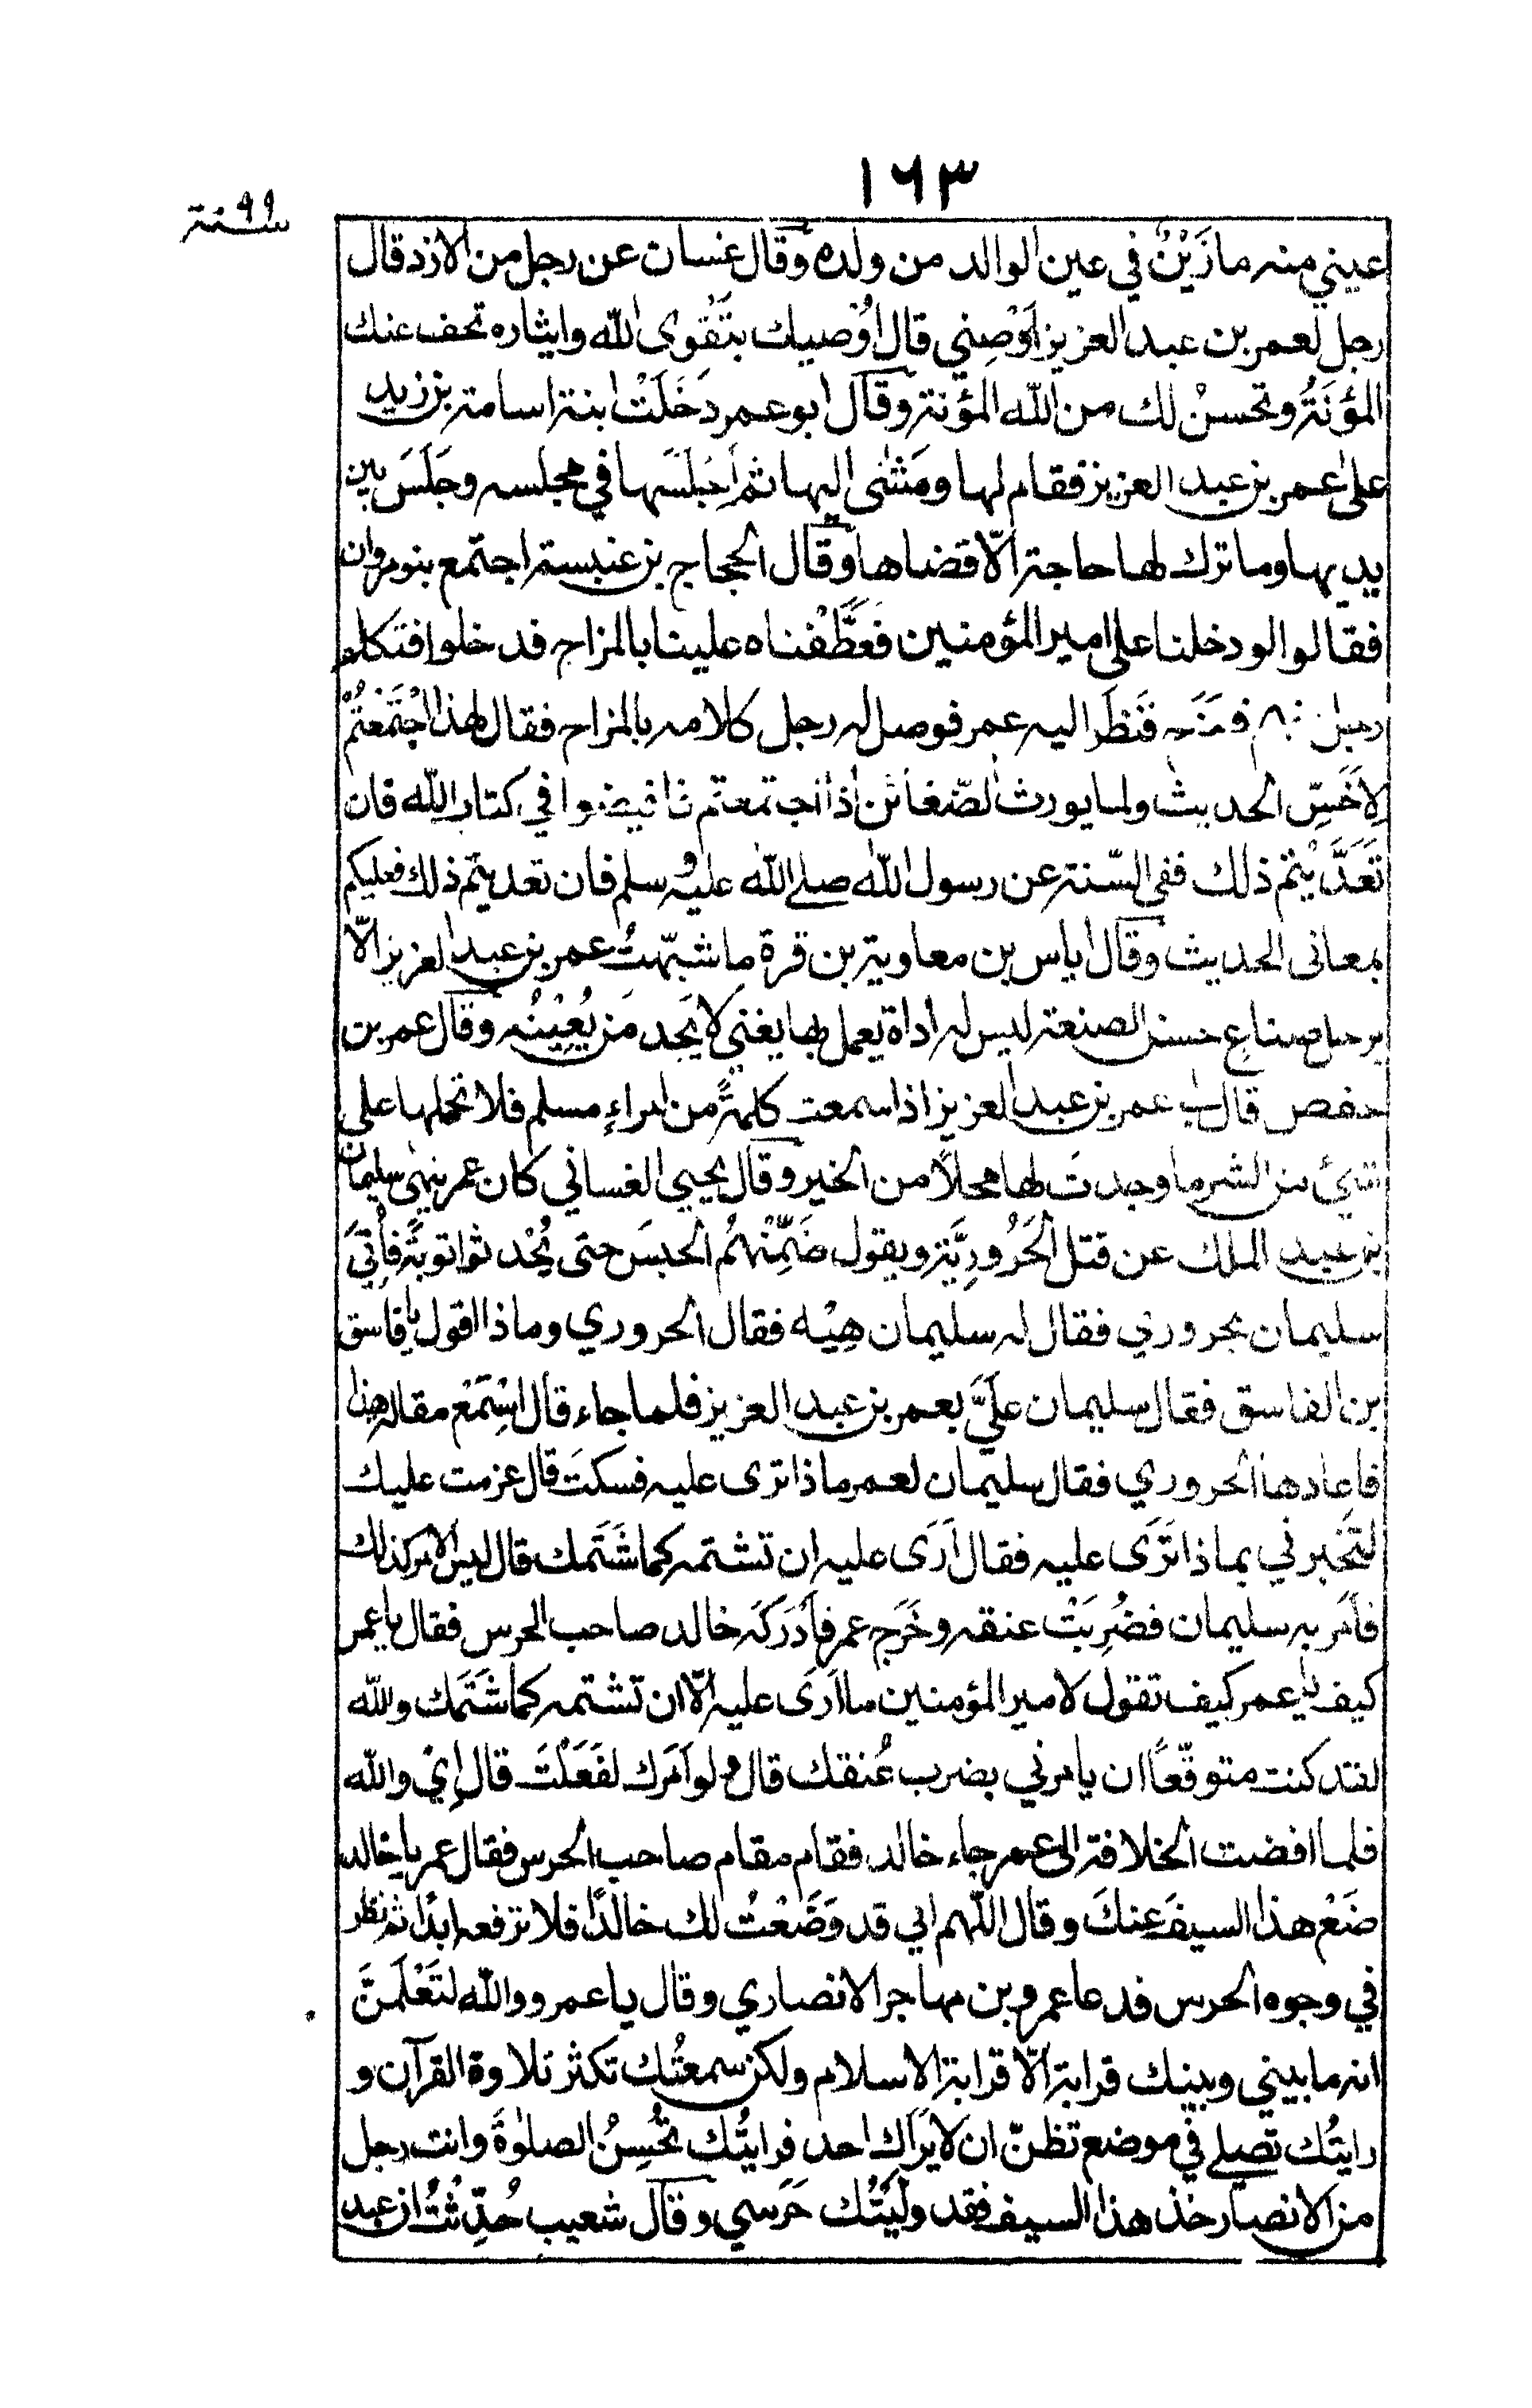 ١٦٣
سنة ٩٩
عيني منه ما زَيْنٌ في عين الوالد من ولده وقال غسان عن رجل من الازد قال
رجل لعمر بن عبد العزيز أوْصِني قال اُوْصيك بتَقْوى الله وايثاره تخف عنك
المؤنَةُ وتحسنْ لك من الله المؤنة وقال ابو عمر دَخَلَتْ ابنة اسامة بن زيد
على عمر بن عبد العزيز فقام لها ومَشٰى اليها ثم اَجْلَسَها في مجلسه وجَلَسَ بين
يديها وما ترك لها حاجة الّا قضاها وقال الحجاج بن عنبسة اجتمع بنو مروان
فقالوا لو دخلنا على امير المؤمنين فَعَطَّفْناه علينا بالمزاح فدخلوا فتكلم
رجل منهم فمَزَح فَنَظَرَ اليه عمر فوصل له رجل كلامه بالمزاح فقال لهذا اجْتَمَعْتُمْ
لِأخَسِّ الحديث ولما يورث الضّغائن اذا اجتمعتم فافيضوا في كتاب الله فان
تَعَدَّيْتم ذلك ففي السّنة عن رسول الله صلى الله عليه وسلم فان تعديتم ذلك فعليكم
بمعاني الحديث وقال اياس بن معاوية بن قرة ما شبّهتُ عمر بن عبد العزيز الّا
برجل صناع حسن الصنعة ليس له أداة يعمل بها يعني لا يَجد مَن يُعِيْنُه وقال عمر بن
حفص قال لي عمر بن عبد العزيز اذا سمعت كلمةً من امراءٍ مسلم فلا تحملها على
شيئ من الشر ما وجدتَ لها محملًا من الخير وقال يحيي الغساني كان عمر ينهى سليمان
بن عبد الملك عن قتل الحَرُورِيَّة ويقول ضَمِّنْهُم الحبسَ حتى يُحْدثوا توبَةً فأُتيَ
سليمان بحروري فقال له سليمان هِيْه فقال الحروري وماذا اقول يا فاسق
بن الفاسق فقال سليمان عَلَيَّ بعمر بن عبد العزيز فلما جاء قال اسْتَمِعْ مقالة هذا
فاعادها الحروري فقال سليمان لعمر ماذا ترى عليه فسكتَ قال عزمت عليك
لتُخبرني بماذا تَرَى عليه فقال اَرَى عليه ان تشتمه كما شَتَمك قال ليس الامر كذلك
فأمَر به سليمان فضُرِبَتْ عنقه وخَرَج عمر فأَدْرَكَه خالد صاحب الحرس فقال يا عمر
كيف يا عمر كيف تقول لامير المؤمنين ما اَرَى عليه الّا ان تشتمه كما شَتَمَك والله
لقد كنت متوقّعًا ان يامرني بضرب عُنقك قال ولو اَمَرك لفَعَلْتَ قال إيْ والله
فلما افضت الخلافة الى عمر جاء خالد فقام مقام صاحب الحرس فقال عمر يا خالد
ضَعْ هذا السيفَ عنكَ وقال اللّهم اني قد وَضَعْتُ لك خالدًا فلا ترفعه ابدًا ثم نظر
في وجوه الحرس فدعا عمرو بن مهاجر الانصاري وقال يا عمرو والله لتَعْلَمَنَّ
انه ما بيني وبينك قرابة الّا قرابة الاسلام ولكن سمعتُك تكثر تلاوة القرآن و
رايتُك تصلي في موضع تظنّ ان لا يَرَاك احد فرايتُك تُحْسِنُ الصلوٰةَ وانت رجل
من الانصار خذ هذا السيف فقد ولّيتُك حَرَسي وقال شعيب حُدِّثتُ ان عبد